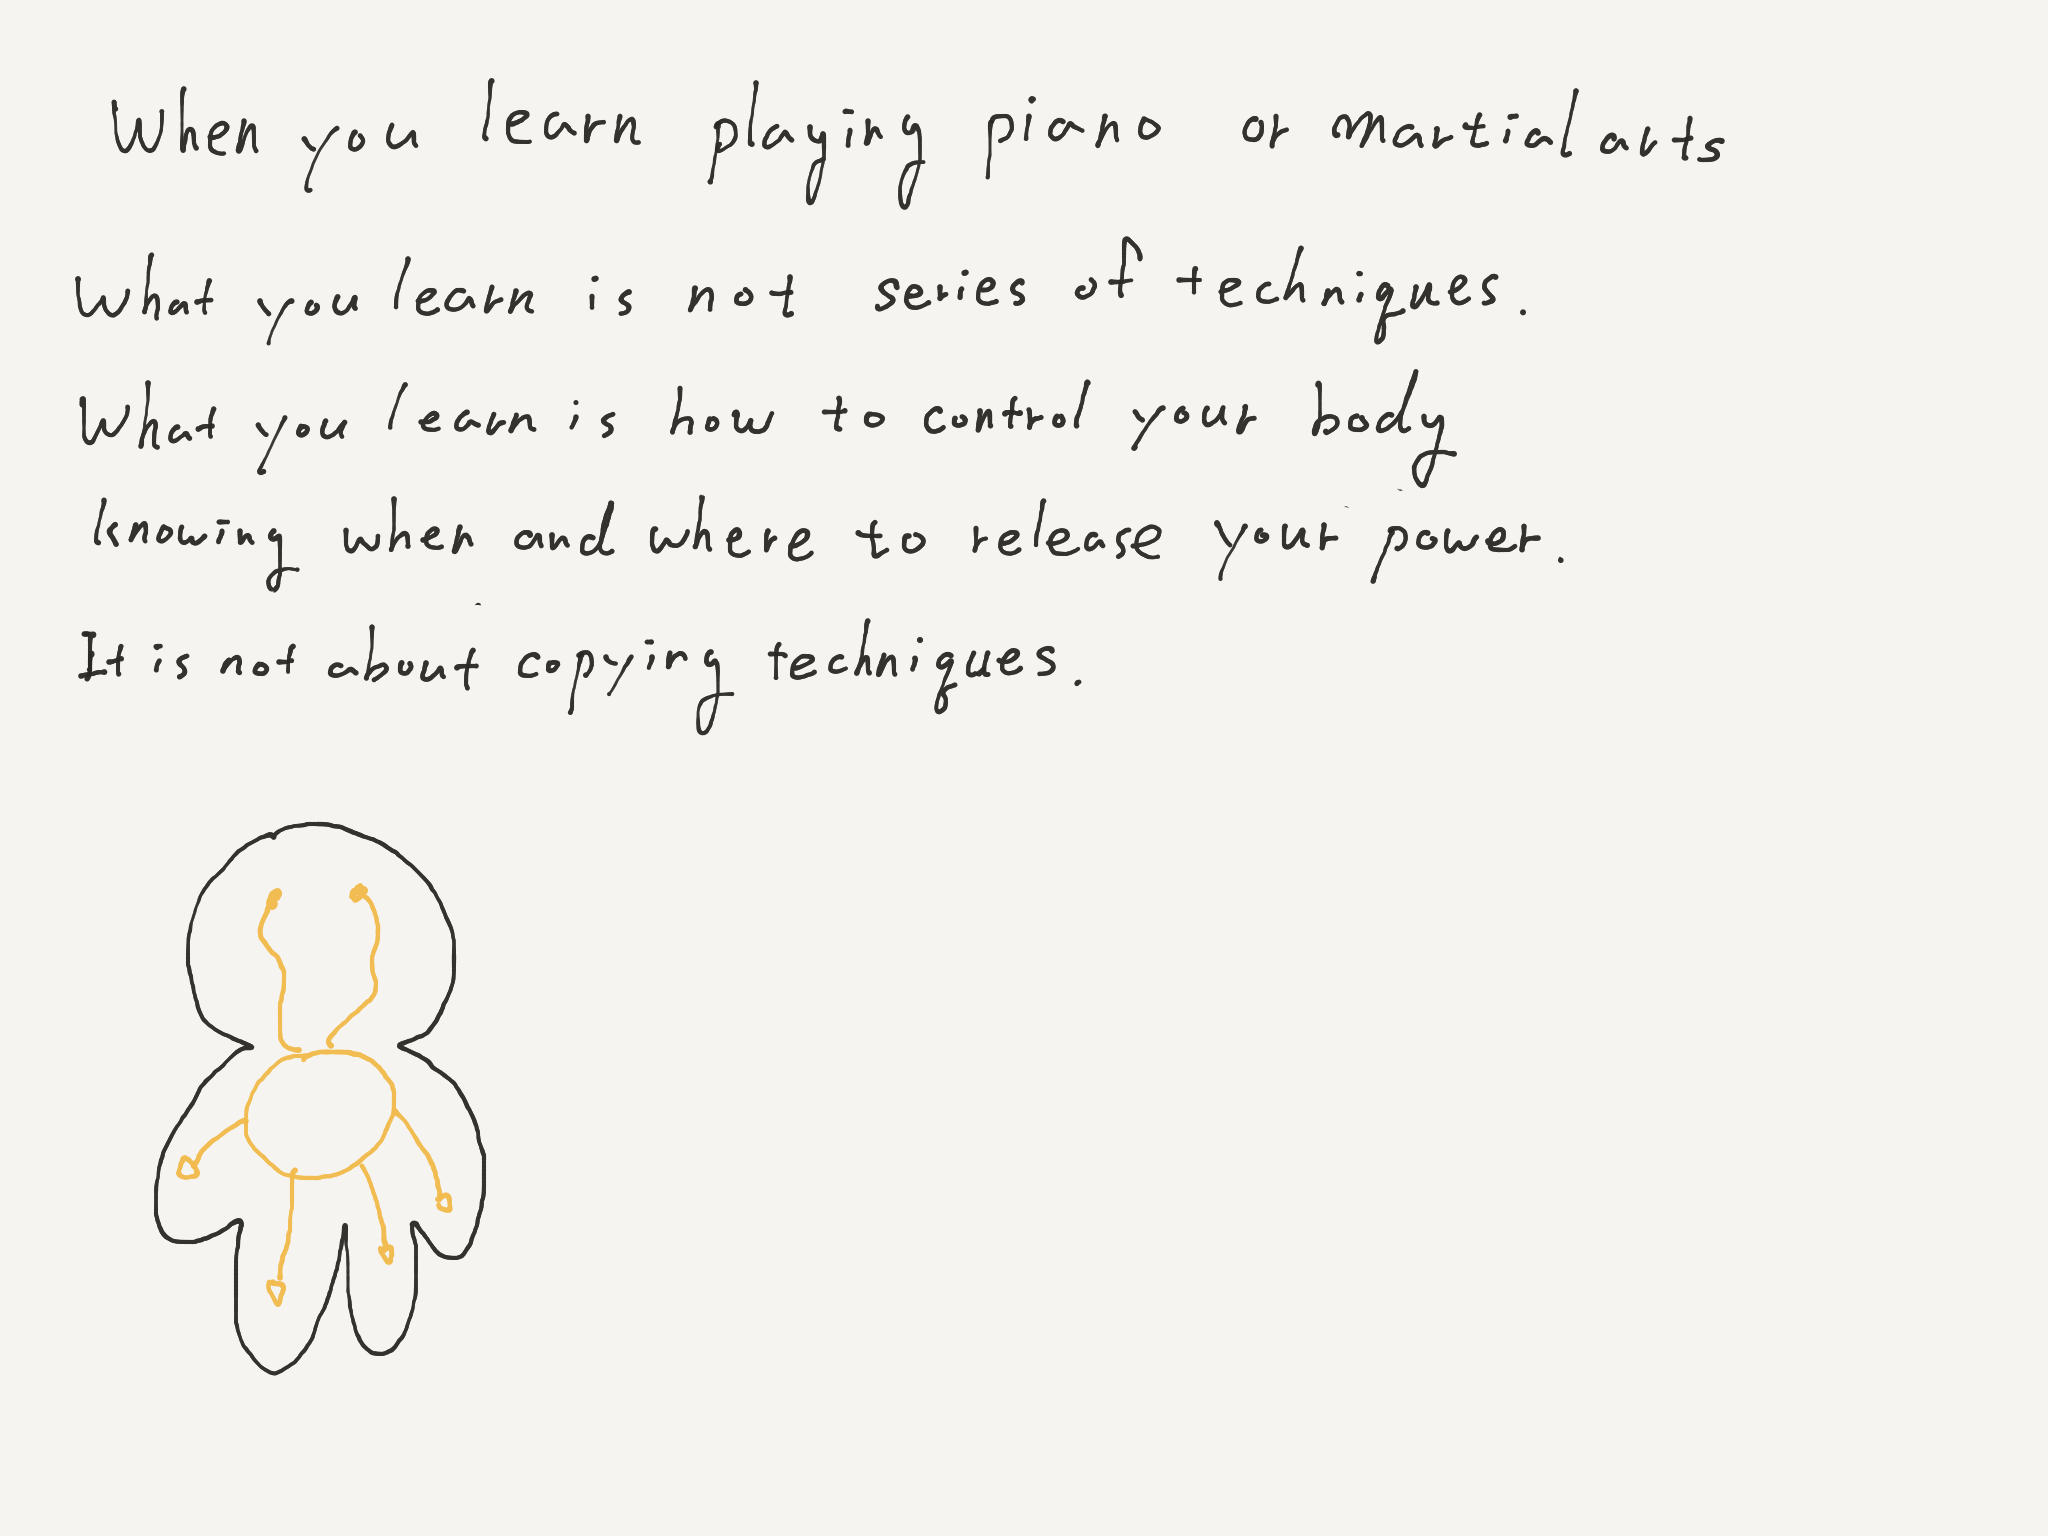 When you learn playing piano or martial arts
What you learn is not series of techniques.
What you learn is how to control your body
knowing when and where to release your power.
It is not about copying techniques.